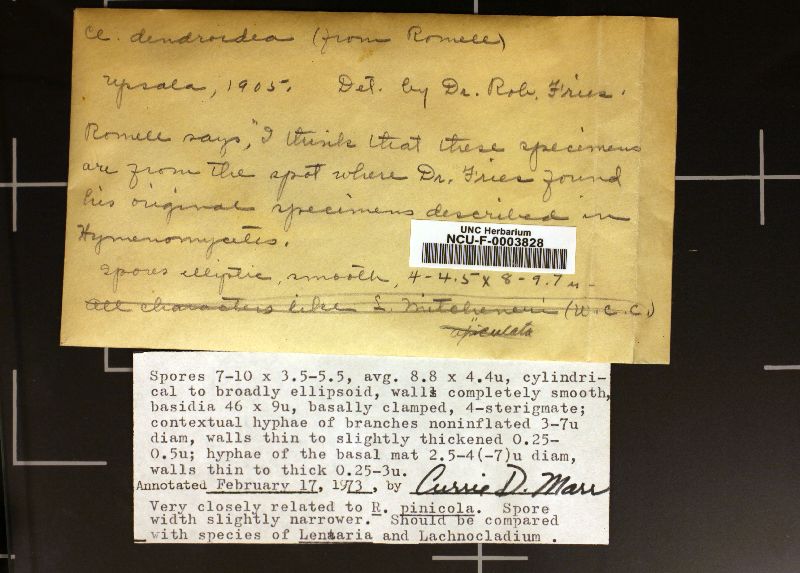 Cl. dendroidea (from Romell)
Upsala, 1905. Det. by Dr. Rob. Fries.
Romell says, "I think that these specimens
are from the spot where Dr. Fries found
his original specimens described in
Hymenomycetes.
UNC Herbarium
NCU-F-0003828
Spores elliptic, smooth, 4-4.5 x 8-9.7 u-
All characters like L. (W.C.C.)
apiculata
Spores 7-10 x 3.5-5.5, avg. 8.8 x 4.4u, cylindri-
cal to broadly ellipsoid, walls completely smooth,
basidia 46 x 9u, basally clamped, 4-sterigmate;
contextual hyphae of branches noninflated 3-7u
diam, walls thin to slightly thickened 0.25-
0.5u; hyphae of the basal mat 2.5-4(-7)u diam,
walls thin to thick 0.25-3u.
Annotated February 17, 1973, by Currie D. Marr
Very closely related to R. pinicola. Spore
width slightly narrower. Should be compared
with species of Lentaria and Lachnocladium .